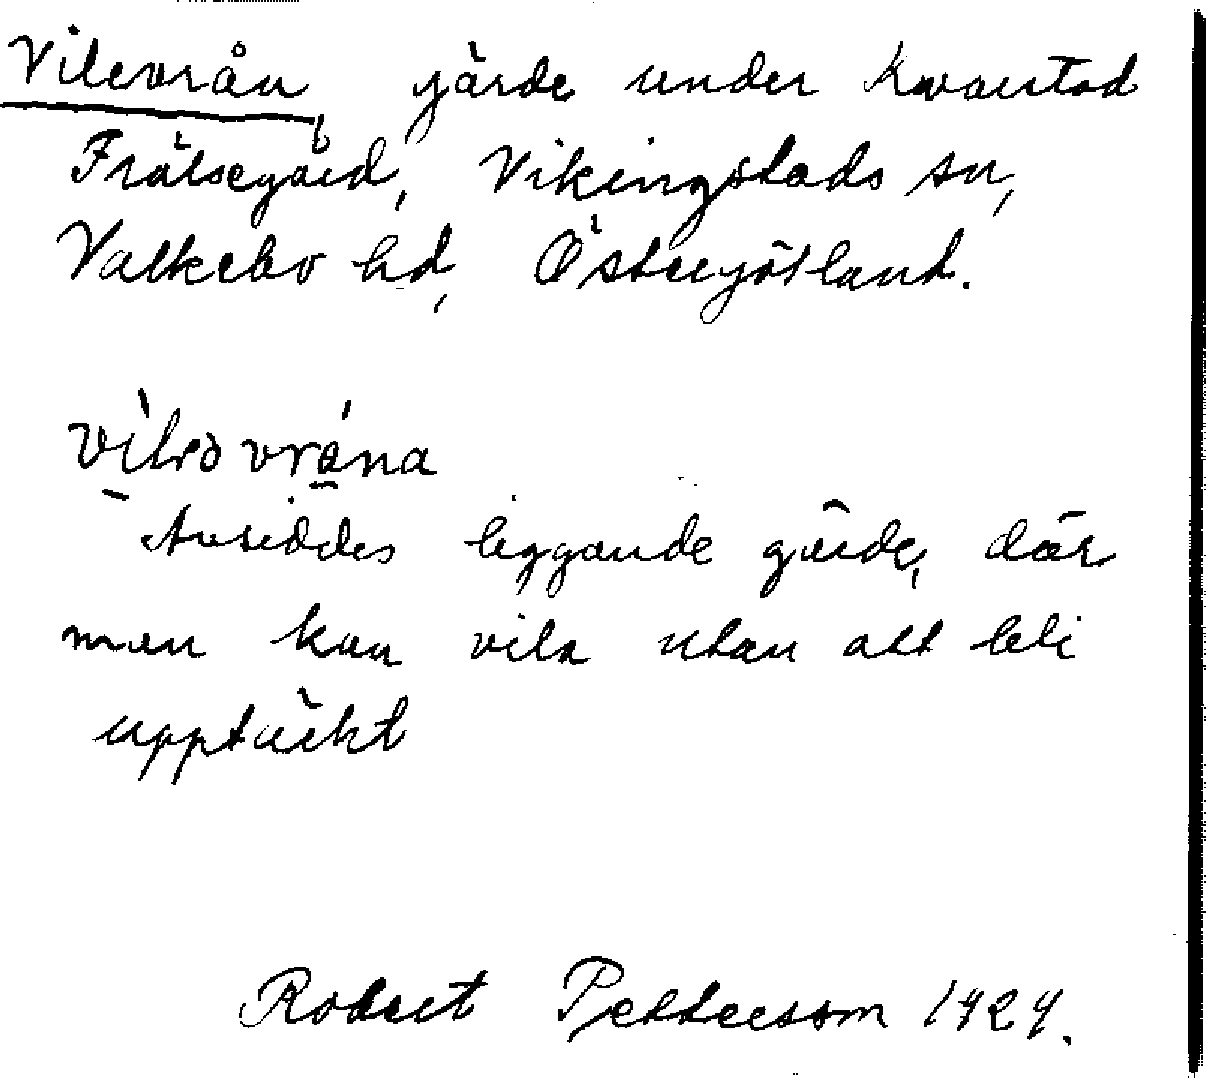 Vilevrån, gärde under Kvarstad
Frälsegård, Vikingstads sn,
Valkebo hd, Östergötland.
vìlǝvrána
Avsiddes liggande gärde, där
man kan vila utan att bli
upptäckt
Robert Pettersson 1929.